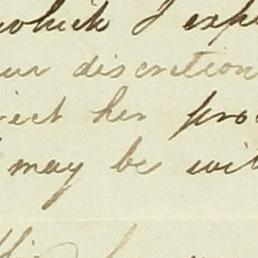 which I exp
ur discretion
ject her pro
may be wit